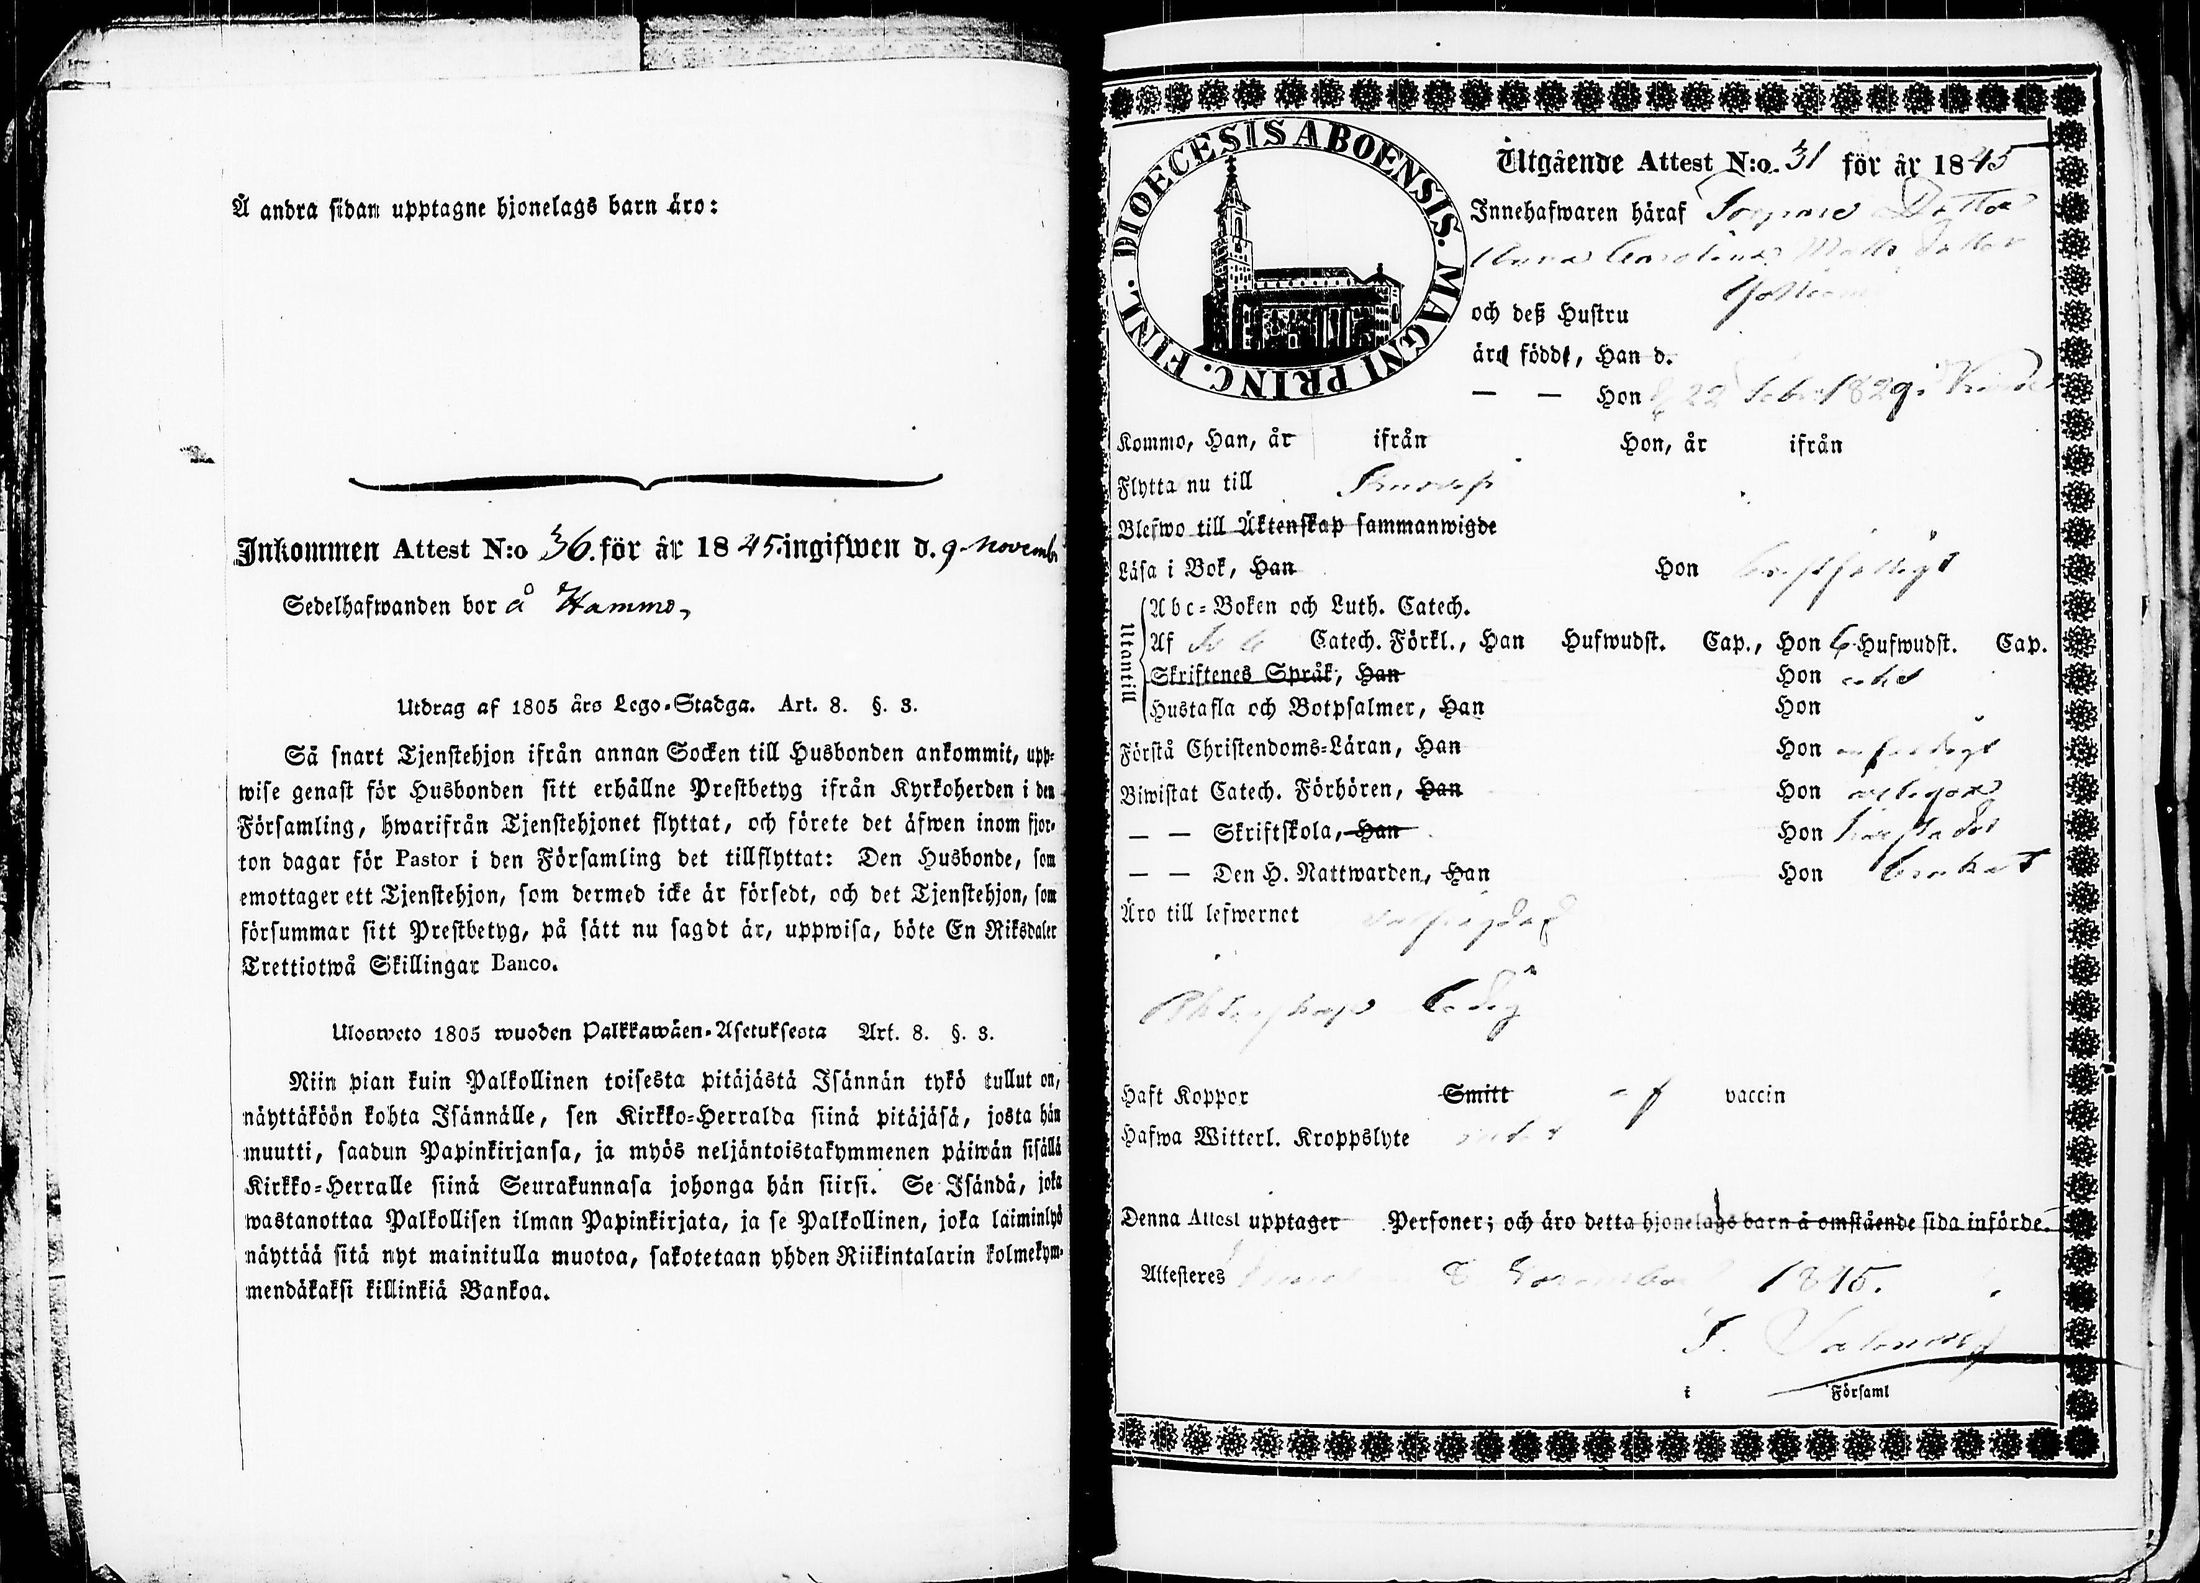 Å andra sidan upptagne hjonelags barn äro:
Inkommen Attest N:o 36. för år 1845. ingifwen d. 9 Novemb
Sedelhafwanden bor å Hammo,
Utdrag af 1805 års Lego-Stadga. Art. 8. §. 3.
Så snart Tjenstehjon ifrån annan Socken till Husbonden ankommit, upp-
wise genast för Husbonden sitt erhållne Prestbetyg ifrån Kyrkoherden i den
Församling, hwarifrån Tjenstehjonet flyttat, och förete det äfwen inom fjor-
ton dagar för Pastor i den Församling det tillflyttat: Den Husbonde, som
emottager ett Tjenstehjon, som dermed icke är försedt, och det Tjenstehjon, som
försummar sitt Prestbetyg, på sätt nu sagdt är, uppwisa, böte En Riksdaler
Trettiotwå Skillingar Banco.
Ulosweto 1805 wuoden Palkkawäen-Asetuksesta Art. 8. §. 3.
Niin pian kuin Palkollinen toisesta pitäjästä Isännän tykö tullut on,
näyttäköön kohta Isännälle, sen Kirkko-Herralda siinä pitäjäsä, josta hän
muutti, saadun Papinkirjansa, ja myös neljäntoistakymmenen päiwän sisällä
Kirkko-Herralle siinä Seurakunnasa johonga hän siirsi. Se Isändä, joka
wastanottaa Palkollisen ilman Papinkirjata, ja se Palkollinen, joka laiminlyö
näyttää sitä nyt mainitulla muotoa, sakotetaan yhden Riikintalarin kolmekym-
mendäkaksi killinkiä Bankoa.
DIOECESIS ABOENSIS. MAGNI PRINC. FINL.
Utgående Attest N:o. 31 för år 1845
Innehafwaren häraf Dotter
Anna Carolina Matts dotter
och deß Hustru
äro födde, Han d.
— — Hon d 22 Febr 1829 i
Kommo, Han, år ifrån Hon, år ifrån
Flytta nu till
Blefwo till Äktenskap sammanwigde
Läsa i Bok, Han Hon
Utantill
Abc-Boken och Luth. Catech.
Af Catech. Förkl., Han Hufwudst. Cap., Hon 6 Hufwudst. Cap.
Skriftenes Språk, Han Hon
Hustafla och Botpsalmer, Han Hon
Förstå Christendoms-Läran, Han Hon
Biwistat Catech. Förhören, Han Hon
— — Skriftskola, Han Hon
— — Den H. Nattwarden, Han Hon brukat
Äro till lefwernet
Äktenskap ledig
Haft Koppor Smitt af vaccin
Hafwa Witterl. Kroppslyte
Denna Attest upptager Personer; och äro detta hjonelags barn å omstående sida införde.
Attesteres November 1845.
i Församl